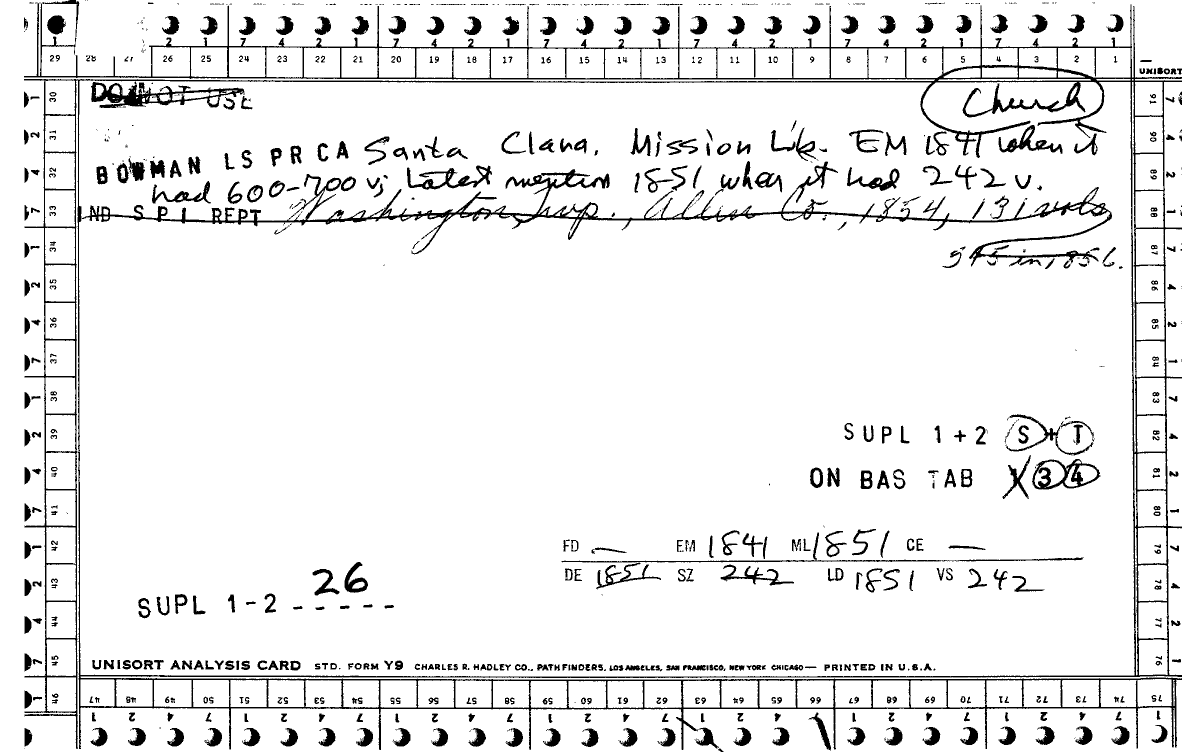 1 2 1 7 4 2 1 7 4 2 1 7 4 2 1 7 4 2 1 7 4 2 1 7 4 2 1
29 28 27 26 25 24 23 22 21 20 19 18 17 16 15 14 13 12 11 10 9 8 7 6 5 4 3 2 1
UNISORT
DO NOT USE
Church
BOWMAN LS PR CA Santa Clara. Mission Lib. EM 1841 when it
had 600-700 v; Latest mention 1851 when it had 242 v.
IND S P I REPT Washington Twp., Allen Co., 1854, 131 vols
545 in 1856.
SUPL 1+2 S+T
ON BAS TAB 1 3 4
FD — EM 1841 ML 1851 CE —
DE 1851 SZ 242 LD 1851 VS 242
SUPL 1-2 26
UNISORT ANALYSIS CARD STD. FORM Y9 CHARLES R. HADLEY CO., PATHFINDERS, LOS ANGELES, SAN FRANCISCO, NEW YORK CHICAGO— PRINTED IN U.S.A.
30 31 32 33 34 35 36 37 38 39 40 41 42 43 44 45 46
91 90 89 88 87 86 85 84 83 82 81 80 79 78 77 76 75
47 48 49 50 51 52 53 54 55 56 57 58 59 60 61 62 63 64 65 66 67 68 69 70 71 72 73 74